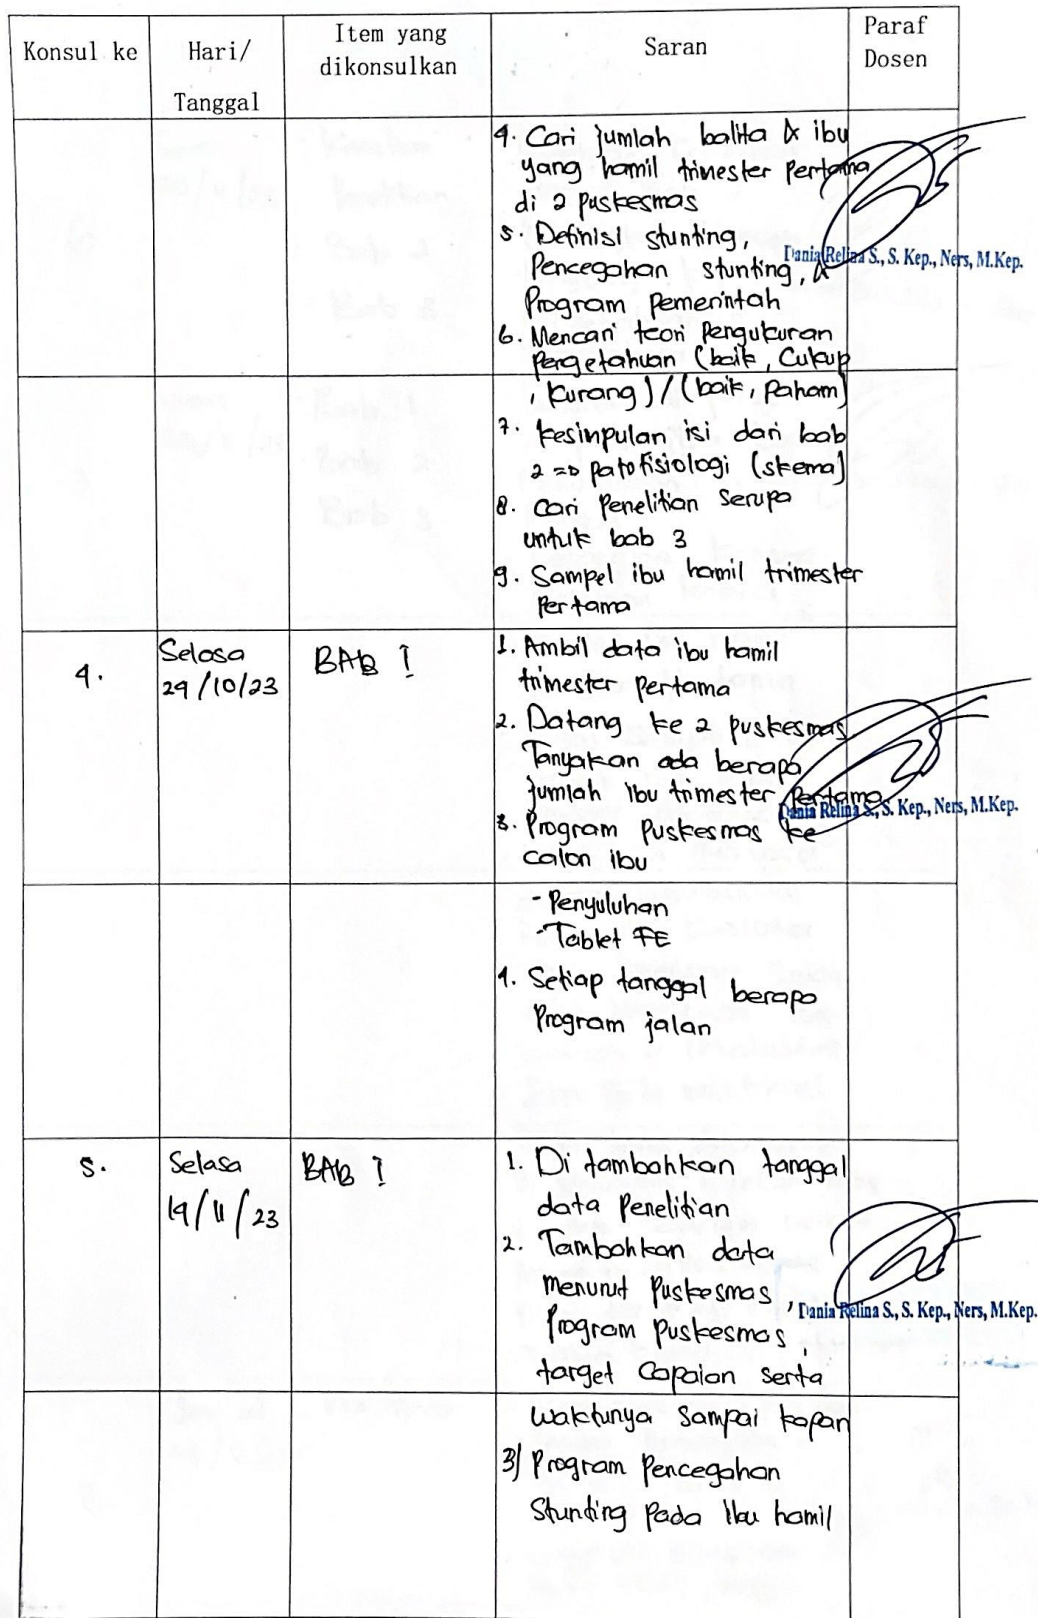 Konsul ke
Hari/
Tanggal
Item yang
dikonsulkan
Saran
Paraf
Dosen
4. Cari jumlah balita & ibu
yang hamil trimester pertama
di 2 puskesmas
5. Definisi stunting,
Pencegahan stunting, &
Program pemerintah
6. Mencari teori Pengukuran
Pengetahuan (baik, Cukup
, kurang) / (baik, paham)
7. kesimpulan isi dari bab
2 => patofisiologi (skema)
8. Cari Penelitian serupa
untuk bab 3
9. Sampel ibu hamil trimester
Pertama
Dania Relina S., S. Kep., Ners, M.Kep.
4.
Selasa
24/10/23
BAB I
1. Ambil data ibu hamil
trimester pertama
2. Datang ke 2 puskesmas
Tanyakan ada berapa
jumlah ibu trimester Pertama
3. Program Puskesmas ke
calon ibu
- Penyuluhan
- Tablet FE
4. Setiap tanggal berapa
Program jalan
Dania Relina S., S. Kep., Ners, M.Kep.
5.
Selasa
14/11/23
BAB I
1. Di tambahkan tanggal
data Penelitian
2. Tambahkan data
menurut Puskesmas,
Program Puskesmas,
target Capaian serta
waktunya sampai kapan
3) Program Pencegahan
Stunting Pada Ibu hamil
Dania Relina S., S. Kep., Ners, M.Kep.